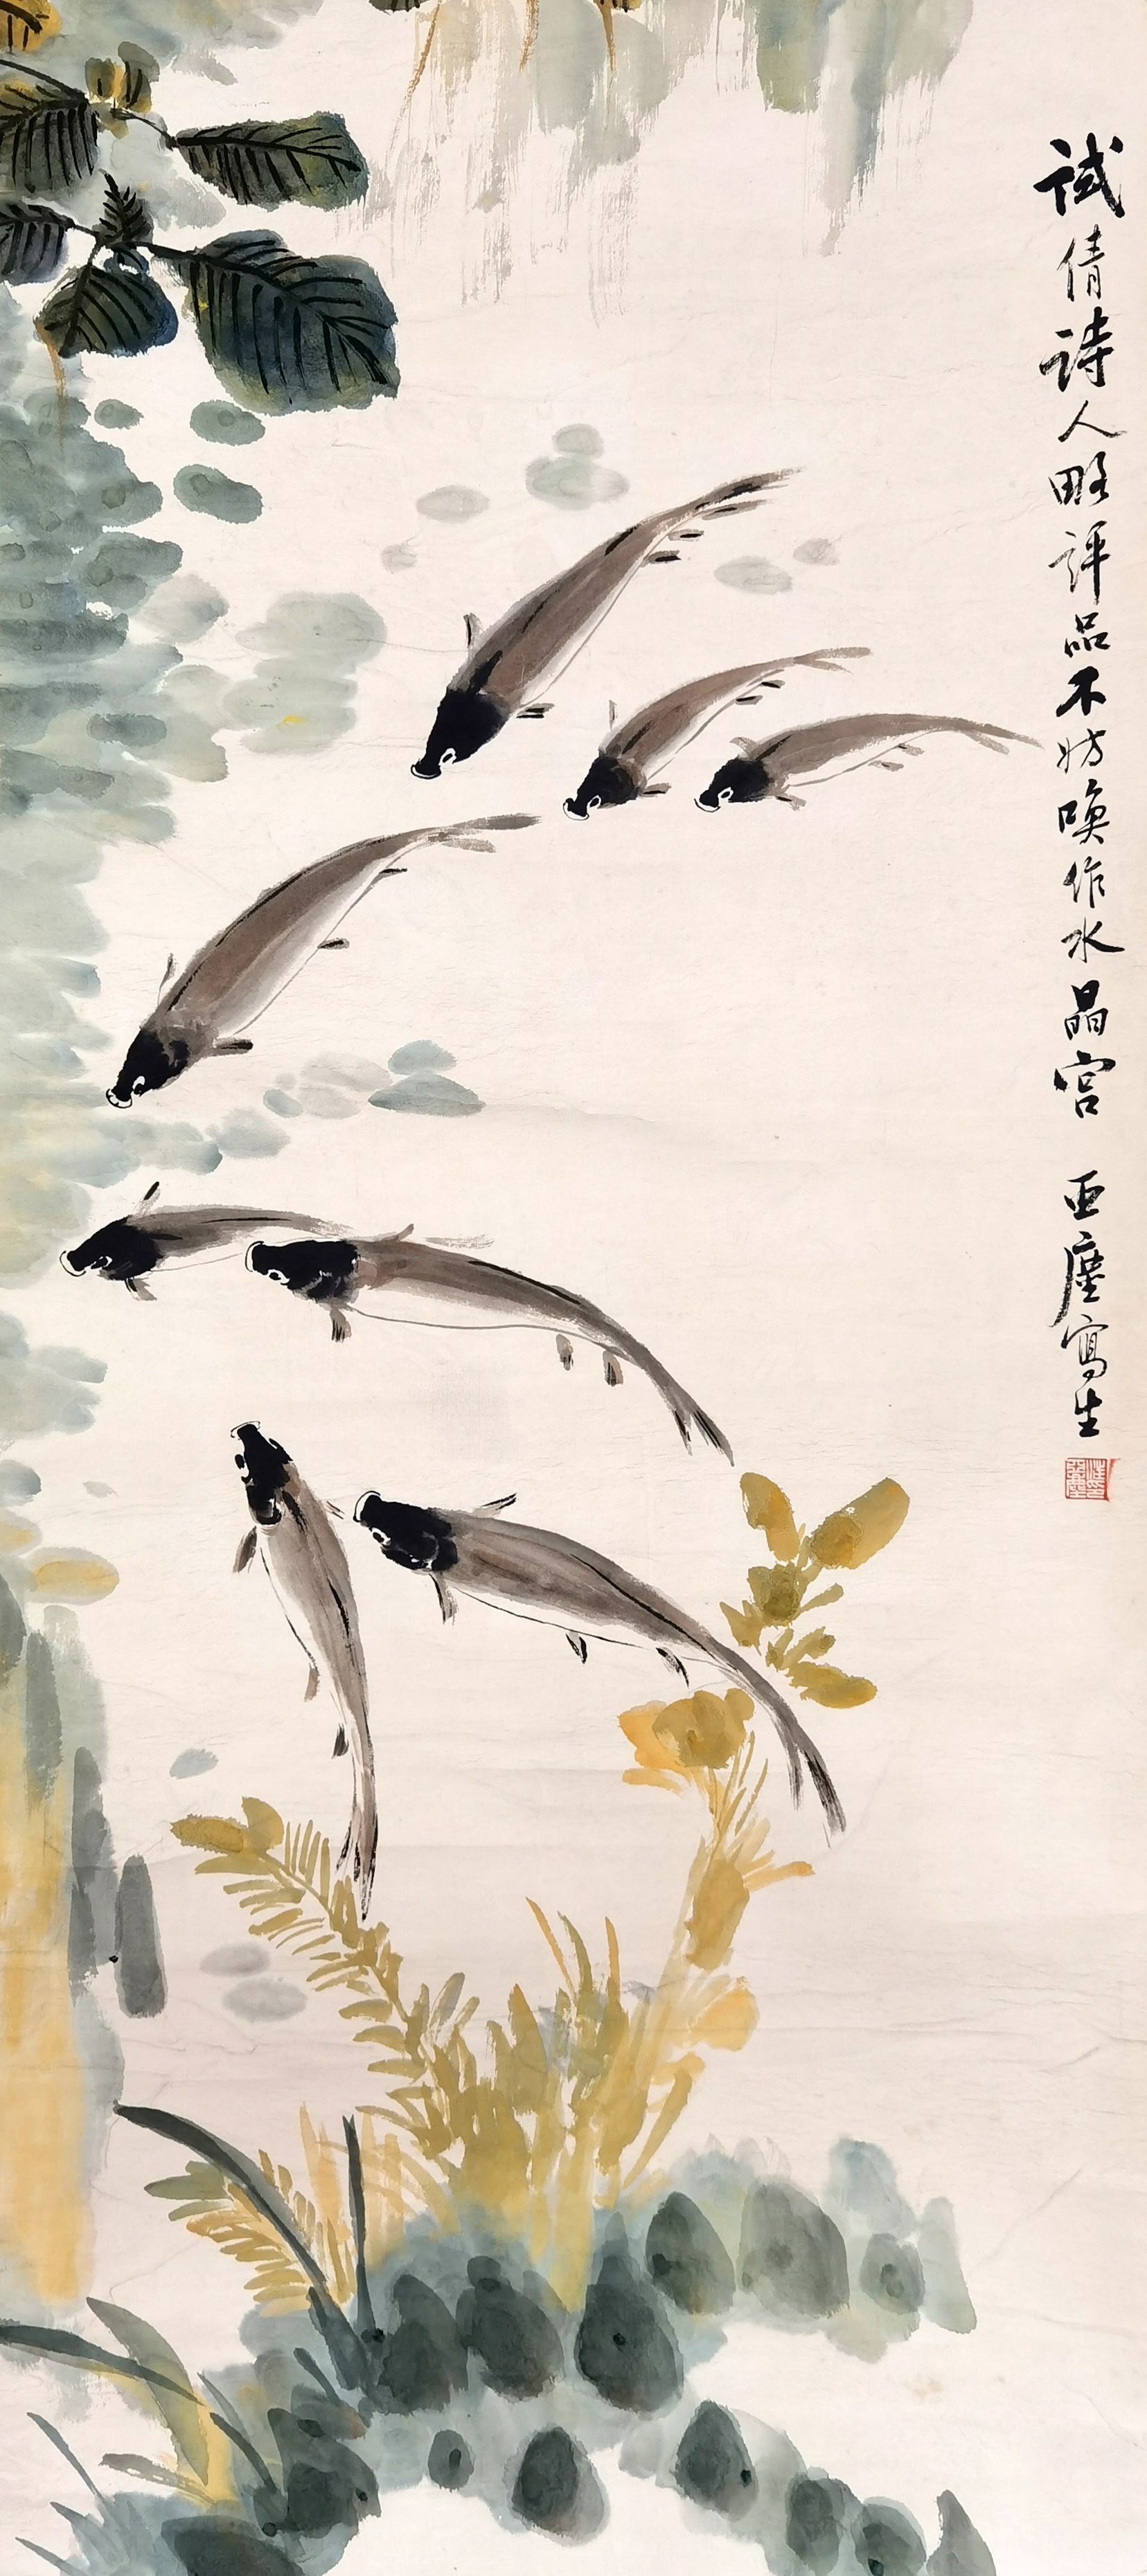 试倩诗人略评品不妨唤作水晶宫 亚尘写生
汪亚尘